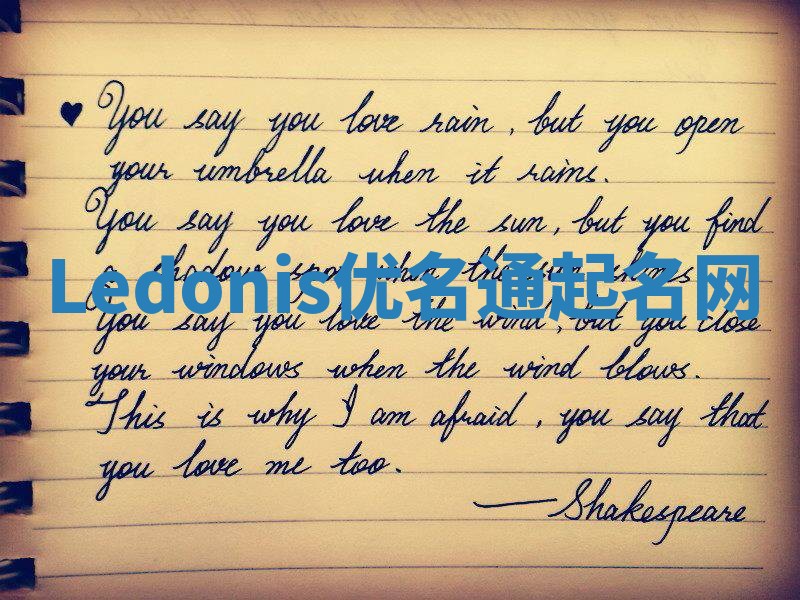 ♥ You say you love rain, but you open
your umbrella when it rains.
You say you love the sun, but you find
a shadow spot when the sun shines
Ledonis优名通起名网
You say you love the wind, but you close
your windows when the wind blows.
This is why I am afraid, you say that
you love me too.
—Shakespeare